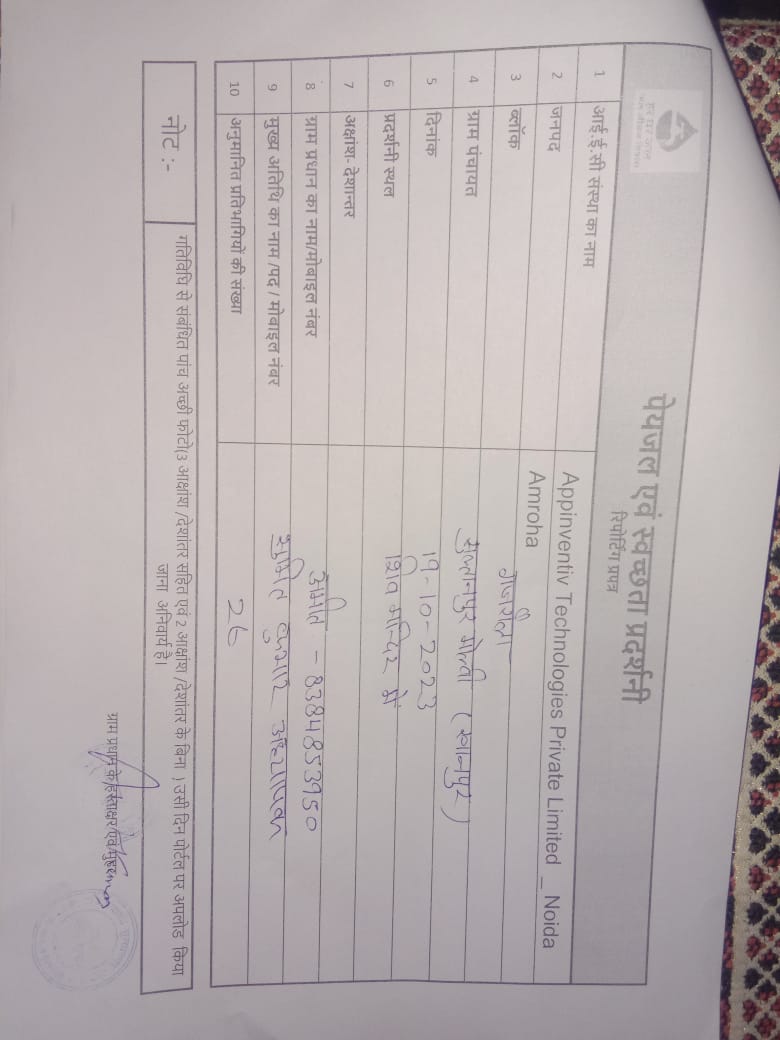 पेयजल एवं स्वच्छता प्रदर्शनी
रिपोर्टिंग प्रपत्र
1 आई.ई.सी संस्था का नाम Appinventiv Technologies Private Limited _ Noida
2 जनपद Amroha
3 ब्लॉक गजरौला
4 ग्राम पंचायत सुल्तानपुर (खानपुर)
5 दिनांक 19-10-2023
6 प्रदर्शनी स्थल शिव मन्दिर में
7 अक्षांश- देशान्तर
8 ग्राम प्रधान का नाम/मोबाइल नंबर अमीत - 8384853950
9 मुख्य अतिथि का नाम /पद / मोबाइल नंबर सुमित कुमार अध्यापक
10 अनुमानित प्रतिभागियों की संख्या 26
नोट :- गतिविधि से संबंधित पांच अच्छी फोटो(3 आक्षांश /देशांतर सहित एवं 2 आक्षांश /देशांतर के बिना ) उसी दिन पोर्टल पर अपलोड किया
जाना अनिवार्य है।
ग्राम प्रधान के हस्ताक्षर एवं मुहर